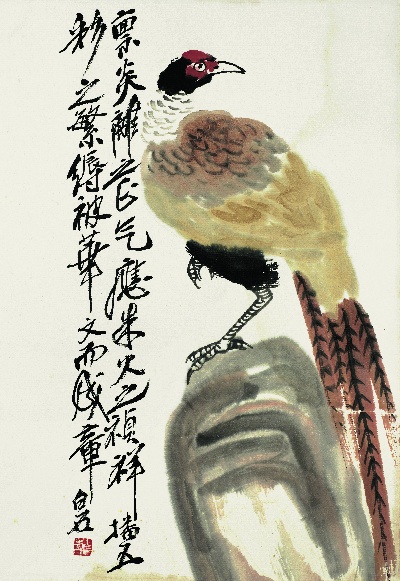 稟炎離之正气應朱火之禎祥播五
彩之繁縟被華文而成章
白石